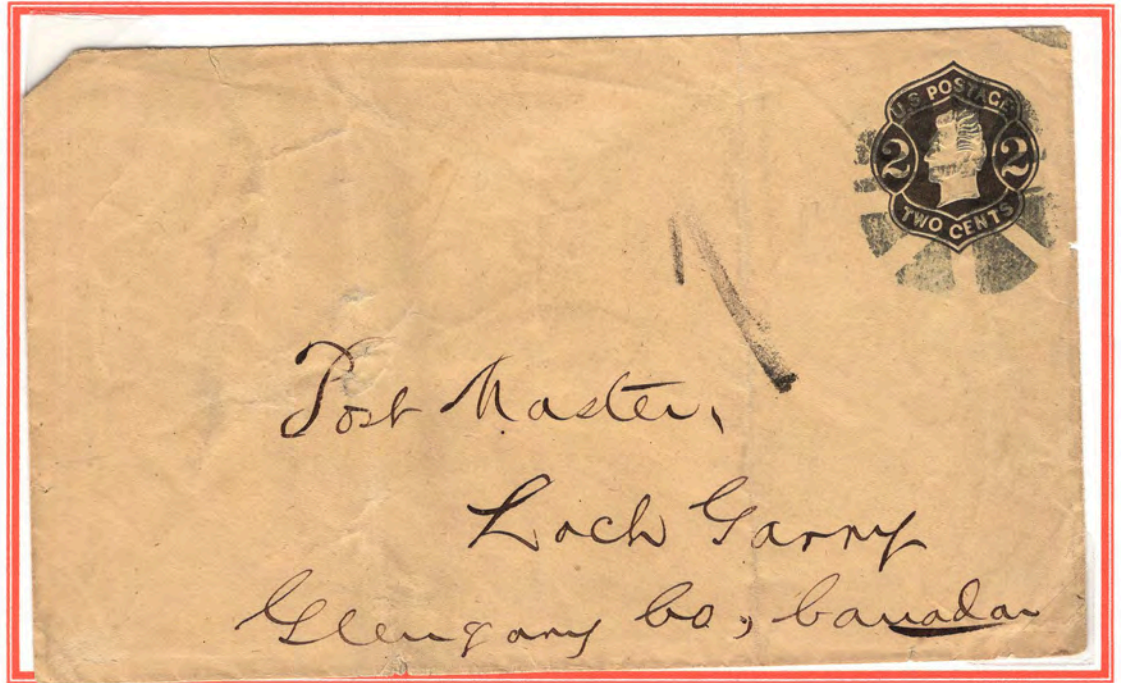 U.S POSTAGE
2 2
TWO CENTS
1
Post Master,
Loch Garry
Glengary Co, Canada